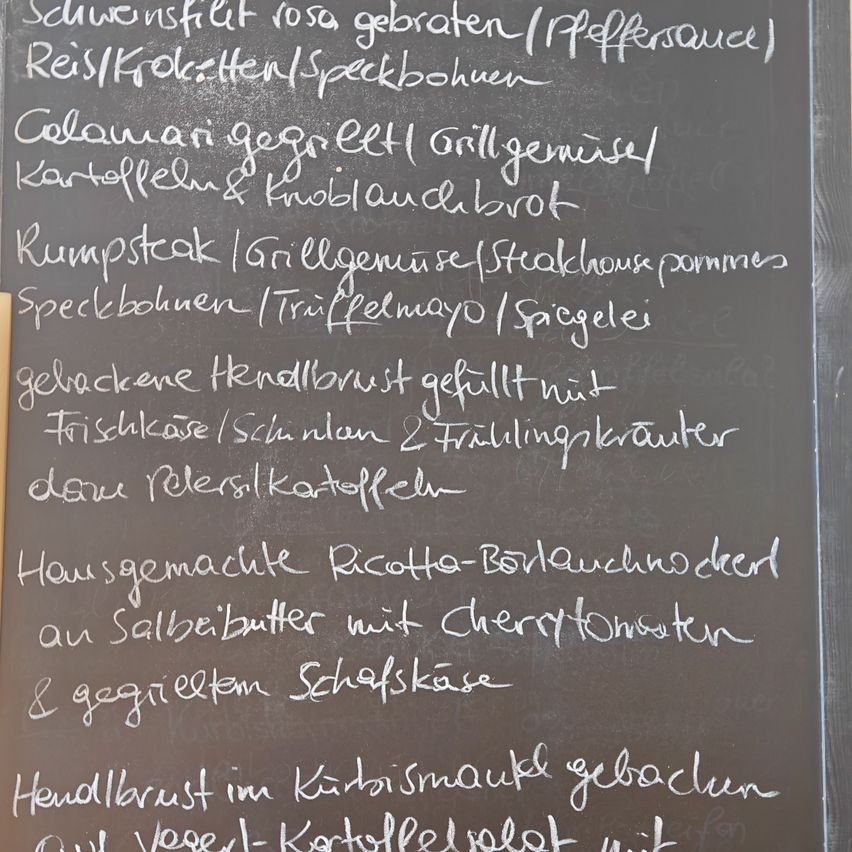 Schweinsfilet rosa gebraten / Pfeffersauce /
Reis/Kroketten/Speckbohnen
Calamari gegrillt / Grillgemüse /
Kartoffeln & Knoblauchbrot
Rumpsteak / Grillgemüse / Steakhousepommes
Speckbohnen / Trüffelmayo / Spiegelei
gebackene Hendlbrust gefüllt mit
Frischkäse / Schinken & Frühlingskräuter
dazu Petersilkartoffeln
Hausgemachte Ricotta-Bärlauchnockerl
an Salbeibutter mit Cherrytomaten
& gegrilltem Schafskäse
Hendlbrust im Kürbismantel gebacken
auf Vogerl-Kartoffelsalat mit